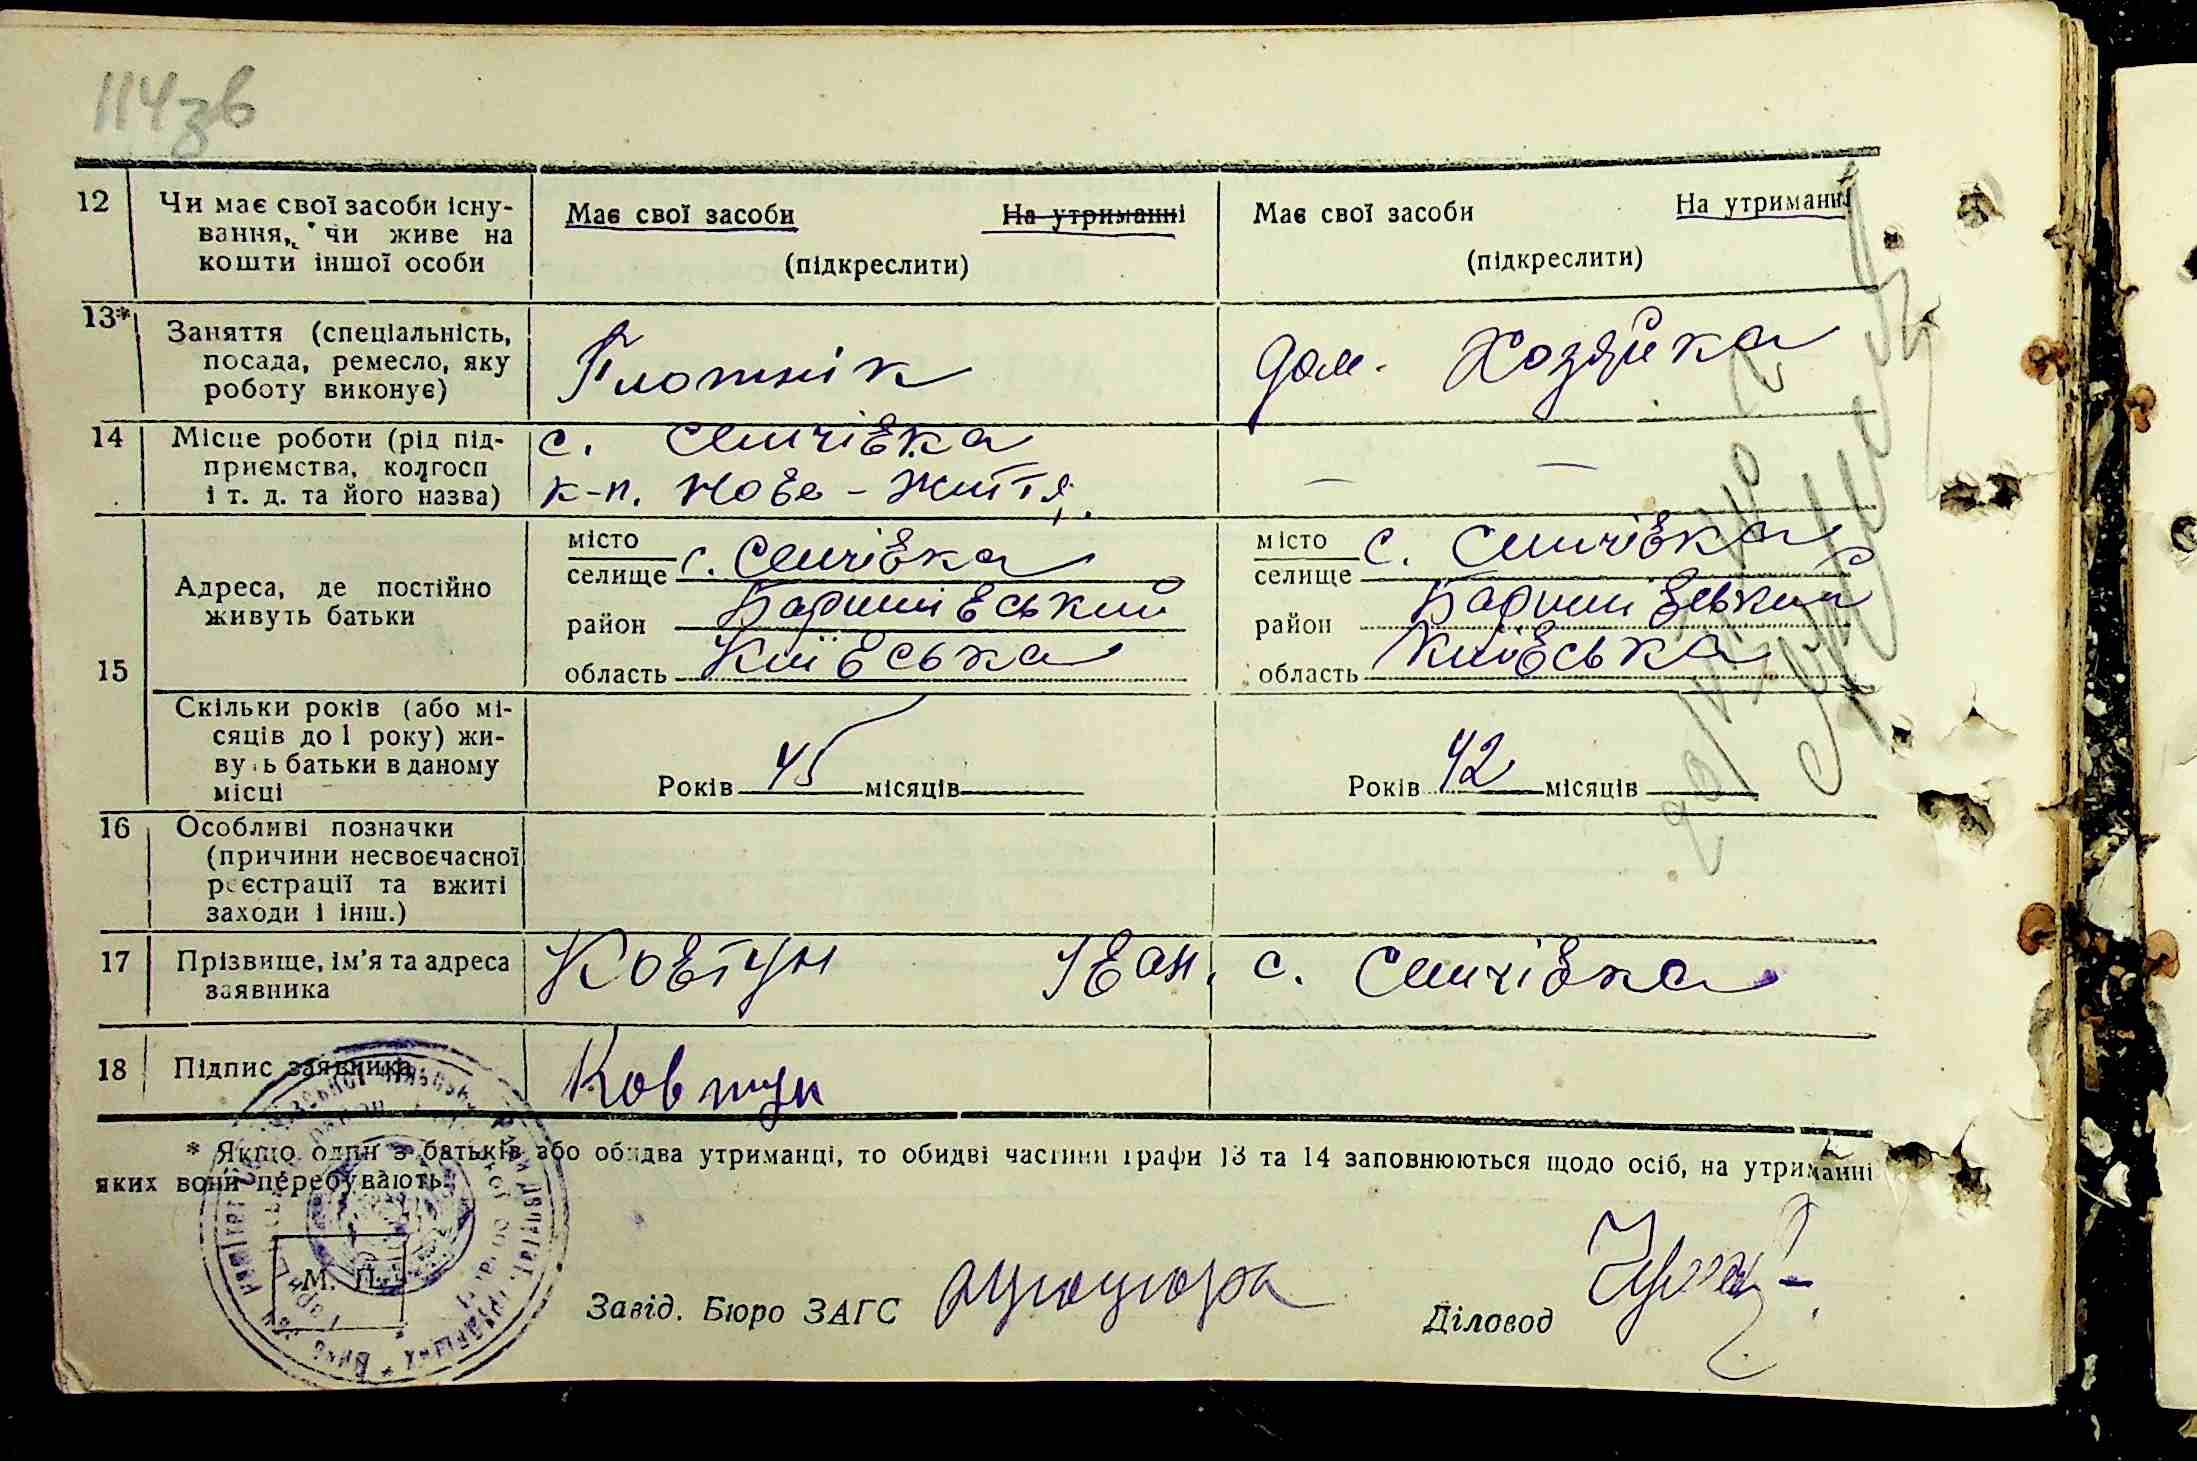 114зв
12 Чи має свої засоби існу- Має свої засоби На утриманні Має свої засоби На утриманні
вання, чи живе на
кошти іншої особи (підкреслити) (підкреслити)
13* Заняття (спеціальність,
посада, ремесло, яку Плотнік дом. Хозяйка
роботу виконує)
14 Місце роботи (рід під- с. Семчівка
приємства, колгосп
і т. д. та його назва) к-п. Нове-Життя. — —
15 Адреса, де постійно
живуть батьки
місто
селище с. Семчівка
район Баришівський
область Київська
місто
селище с. Семчівка
район Баришівський
область Київська
Скільки років (або мі-
сяців до 1 року) жи-
вуть батьки в даному
місці
Років 45 місяців Років 42 місяців
16 Особливі позначки
(причини несвоєчасної
реєстрації та вжиті
заходи і інш.)
17 Прізвище, ім'я та адреса Ковтун Іван, с. Семчівка
заявника
18 Підпис заявника Ковтун
* Якщо один з батьків або обидва утриманці, то обидві частини графи 13 та 14 заповнюються щодо осіб, на утриманні
яких вони перебувають.
М. П.
Завід. Бюро ЗАГС
Діловод